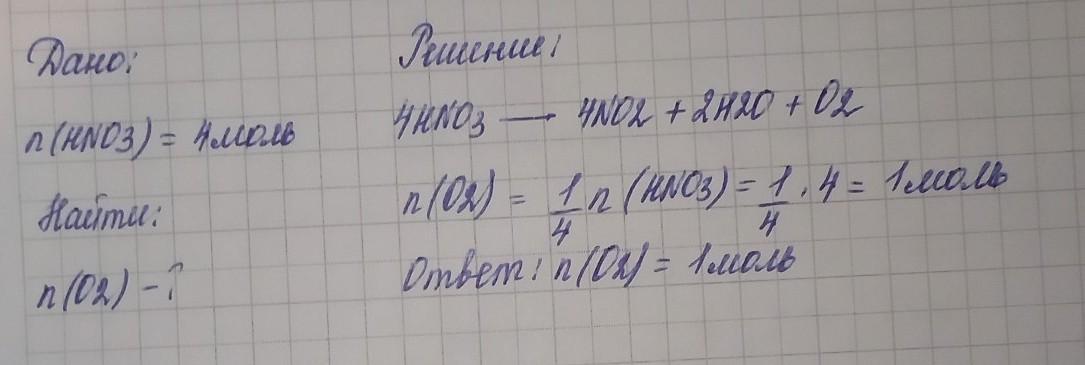 Дано:
n(HNO3) = 4моль
Найти:
n(O2) - ?
Решение:
4HNO3 — 4NO2 + 2H2O + O2
n(O2) = 1/4 n (HNO3) = 1/4 · 4 = 1моль
Ответ: n(O2) = 1моль